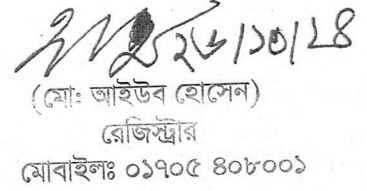 ২৬/১০/২৪
(মোঃ আইউব হোসেন)
রেজিস্ট্রার
মোবাইলঃ ০১৭০৫ ৪০৮০০১